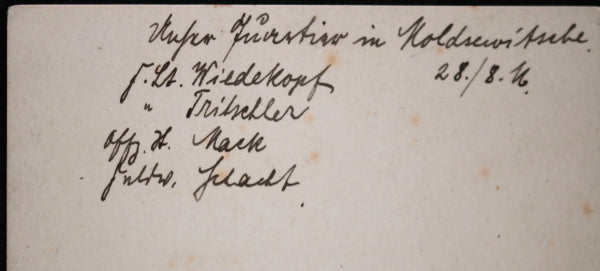 Unser Quartier in Moldsewitsche.
F. Lt. Wiedekopf 28./8. 16.
" Tritschler
Offz. St. Mack
Feldw. Schacht